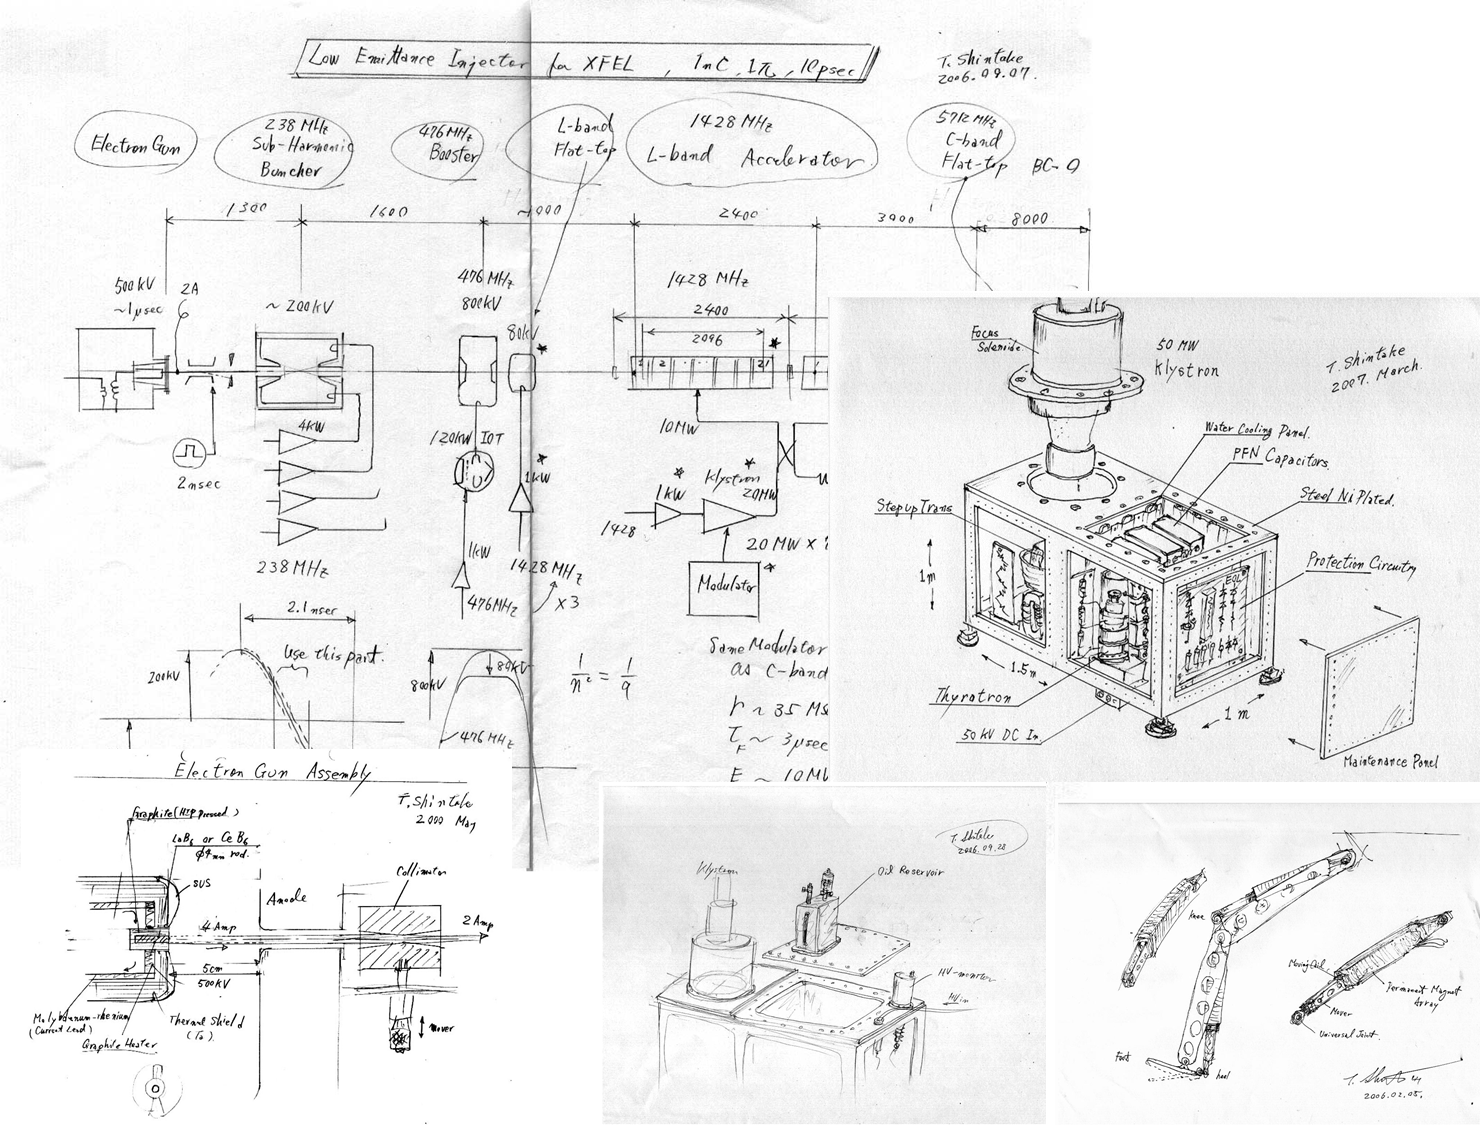 Low Emittance Injector for XFEL, 1nC, 1π, 10psec
T. Shintake
2006.09.07.
Electron Gun
238 MHz
Sub-Harmonic
Buncher
476 MHz
Booster
L-band
Flat-top
1428 MHz
L-band Accelerator
5712 MHz
C-band
Flat-top
BC-0
1300
1600
~1000
2400
3900
8000
500kV
~1μsec
2A
~200kV
476 MHz
800kV
80kV
1428 MHz
2400
2096
1 2 21
4kW
2nsec
238 MHz
120kW IOT
1kW
476MHz
1kW
1428 MHz
×3
10MW
1kW
Klystron
20MW
1428
20 MW ×
Modulator
2.1nsec
Use this part.
200kV
800kV
80kV
476 MHz
1/n² = 1/9
Same Modulator
as C-band
τF ~ 3μsec
Focus
Solenoide
50 MW
Klystron
T. Shintake
2007. March.
Water Cooling Panel.
PFN Capacitors.
Steel Ni Plated.
Step up Trans
1m
Protection Circuitry
EOL
1.5m
Thyratron
1 m
50 kV DC In.
Maintenance Panel
Electron Gun Assembly
T. Shintake
2000 May
Graphite (HIP Pressed)
LaB6 or CeB6
φ4mm rod.
SUS
Anode
Collimator
4 Amp
2 Amp
5cm
500kV
Molybdenum-rhenium
(Current Lead)
Graphite Heater
Thermal Shield
(Ta).
mover
T. Shintake
2006.09.28
Klystron
Oil Reservoir
HV-monitor
HV in
Knee
Moving Coil
Permanent Magnet
Array
Mover
Universal Joint.
Foot
heel
2006.02.05.